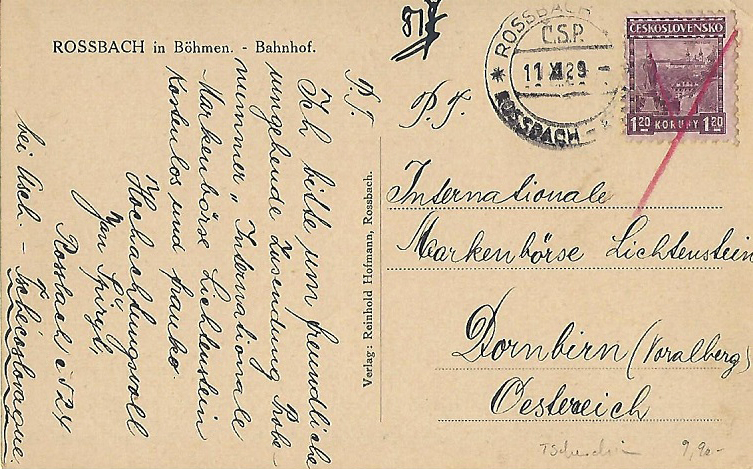 ROSSBACH in Böhmen. - Bahnhof.
P. T.
Ich bitte um freundliche
umgehende Zusendung Probe-
nummer „Internationale
Markenbörse Lichtenstein
kostenlos und franko.
Hochachtungsvoll
Jan Spirgl,
Rossbach č 524
bei Asch. - Tschecoslovaque.
Verlag: Reinhold Hofmann, Rossbach.
817
ROSSBACH
Č.S.P.
11 XI 29
ROSSBACH
ČESKOSLOVENSKO
1.20 KORUNY 1.20
P. T.
Internationale
Markenbörse Lichtenstein
Dornbirn (Voralberg)
Oesterreich
9,90-